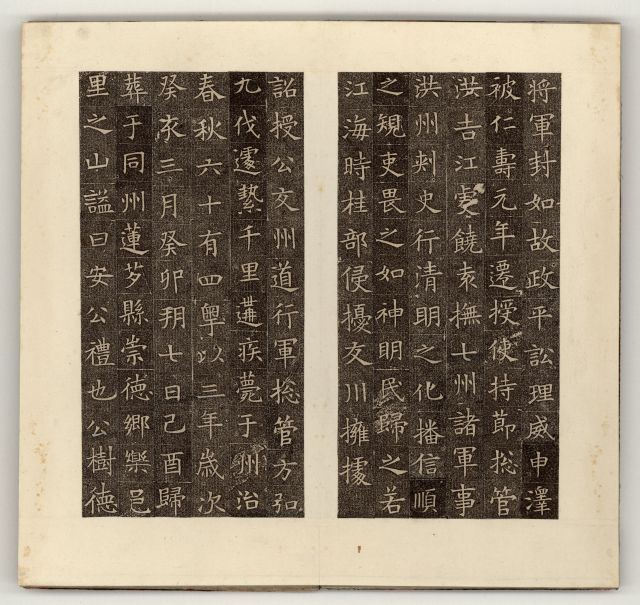 將軍封如故政平訟理威申澤
被仁壽元年遷授使持節揔管
洪吉江虔饒袁撫七州諸軍事
洪州刾史行清明之化播信順
之規吏畏之如神明民歸之若
江海時桂部侵擾交川擁據
詔授公交州道行軍揔管方弘
九伐遽縶千里遘疾薨于州治
春秋六十有四粤以三年歲次
癸亥三月癸卯朔七日己酉歸
葬于同州蓮芍縣崇德鄉樂邑
里之山謚曰安公禮也公樹德